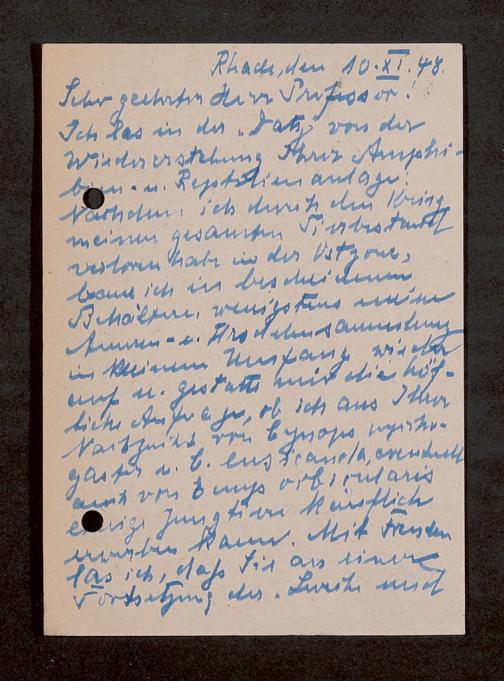 Rhade, den 10.XI.48.
Sehr geehrter Herr Professor!
Ich las in der "Datz" von der
Wiedererstehung Ihrer Amphi-
bien- u. Reptilienanlage!
Nachdem ich durch den Krieg
meinen gesamten Tierbestand
verloren habe in der Ostzone,
baue ich in bescheidenem
Behältern, wenigstens meine
Anuren- u. Urodelensammlung
in kleinem Umfang wieder
auf u. gestatte mir die höf-
liche Anfrage, ob ich aus Ihrer
Nachzucht von Cynops pyrrho-
gaster u. C. ensicauda, eventuell
auch von Emys orbicularis
einige Jungtiere käuflich
erwerben kann. Mit Freuden
las ich, daß Sie an einer
Fortsetzung des "Lurche und